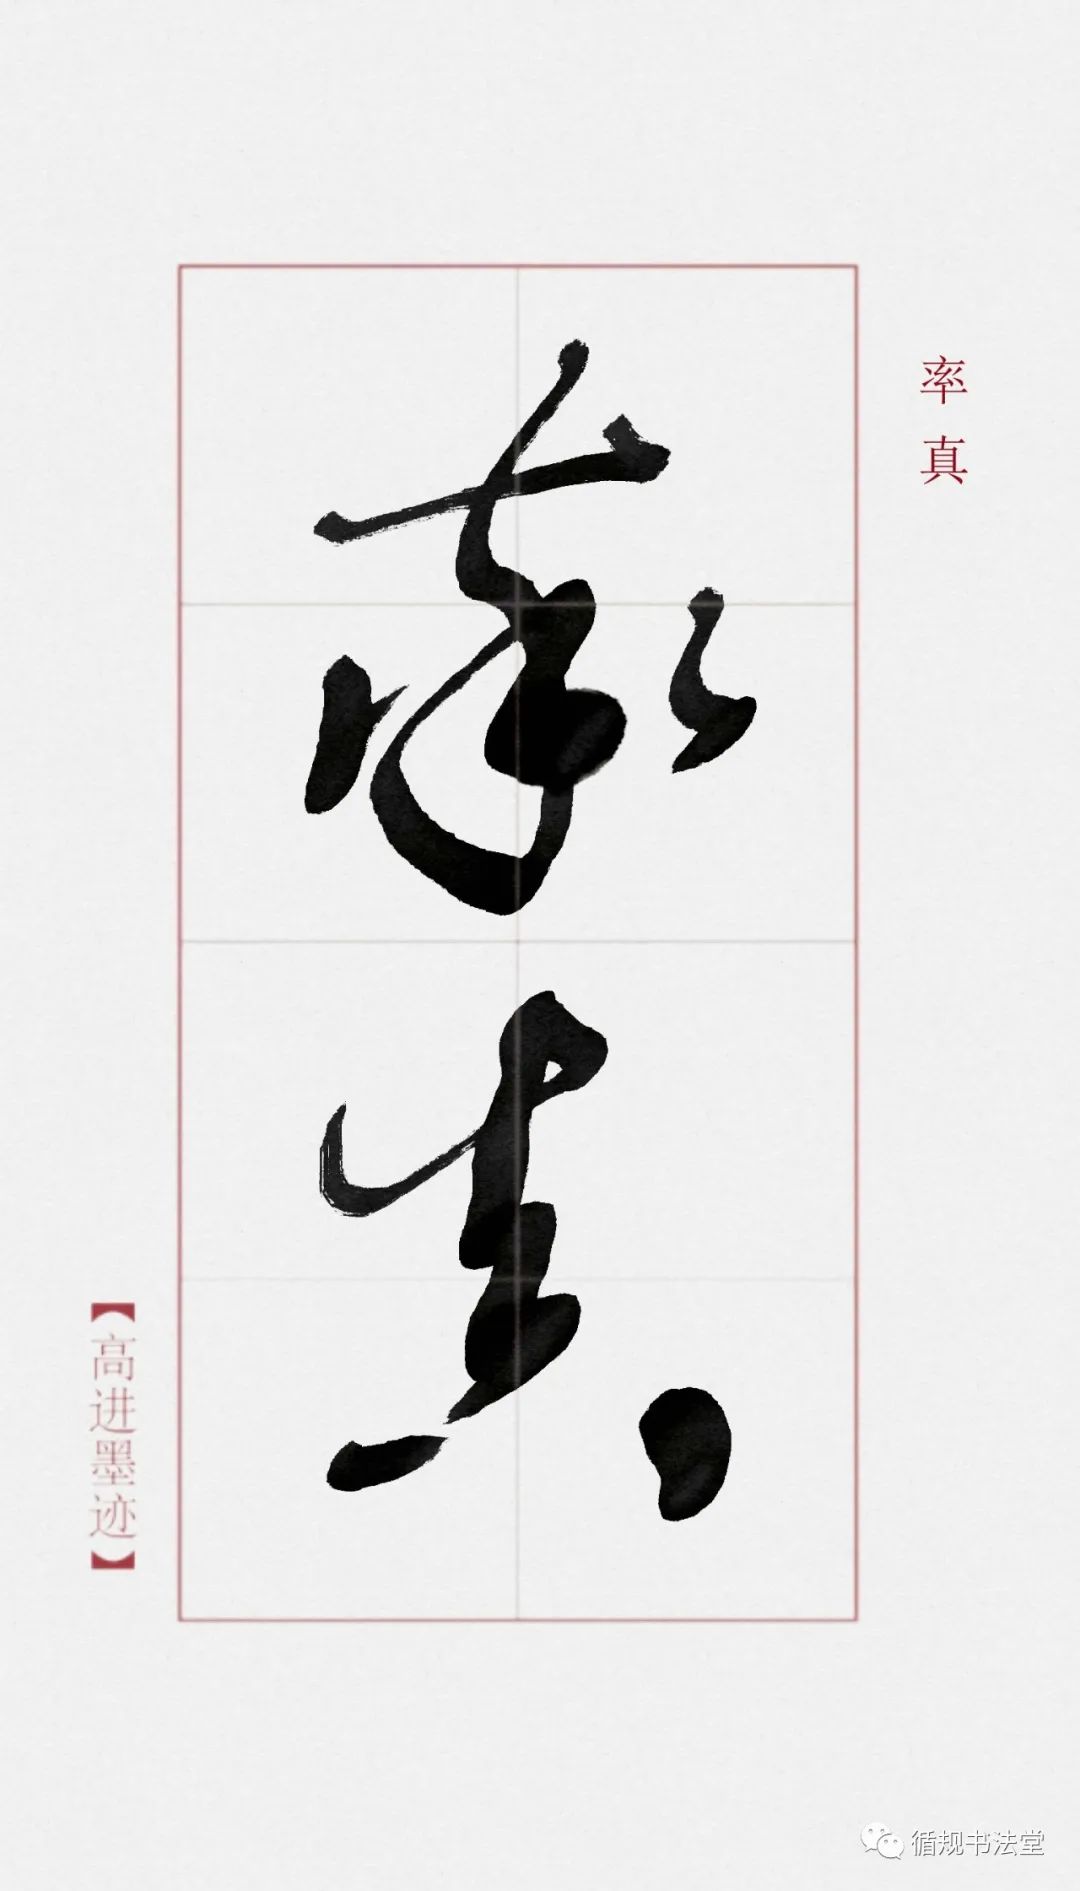 率真
率真
【高进墨迹】
循规书法堂